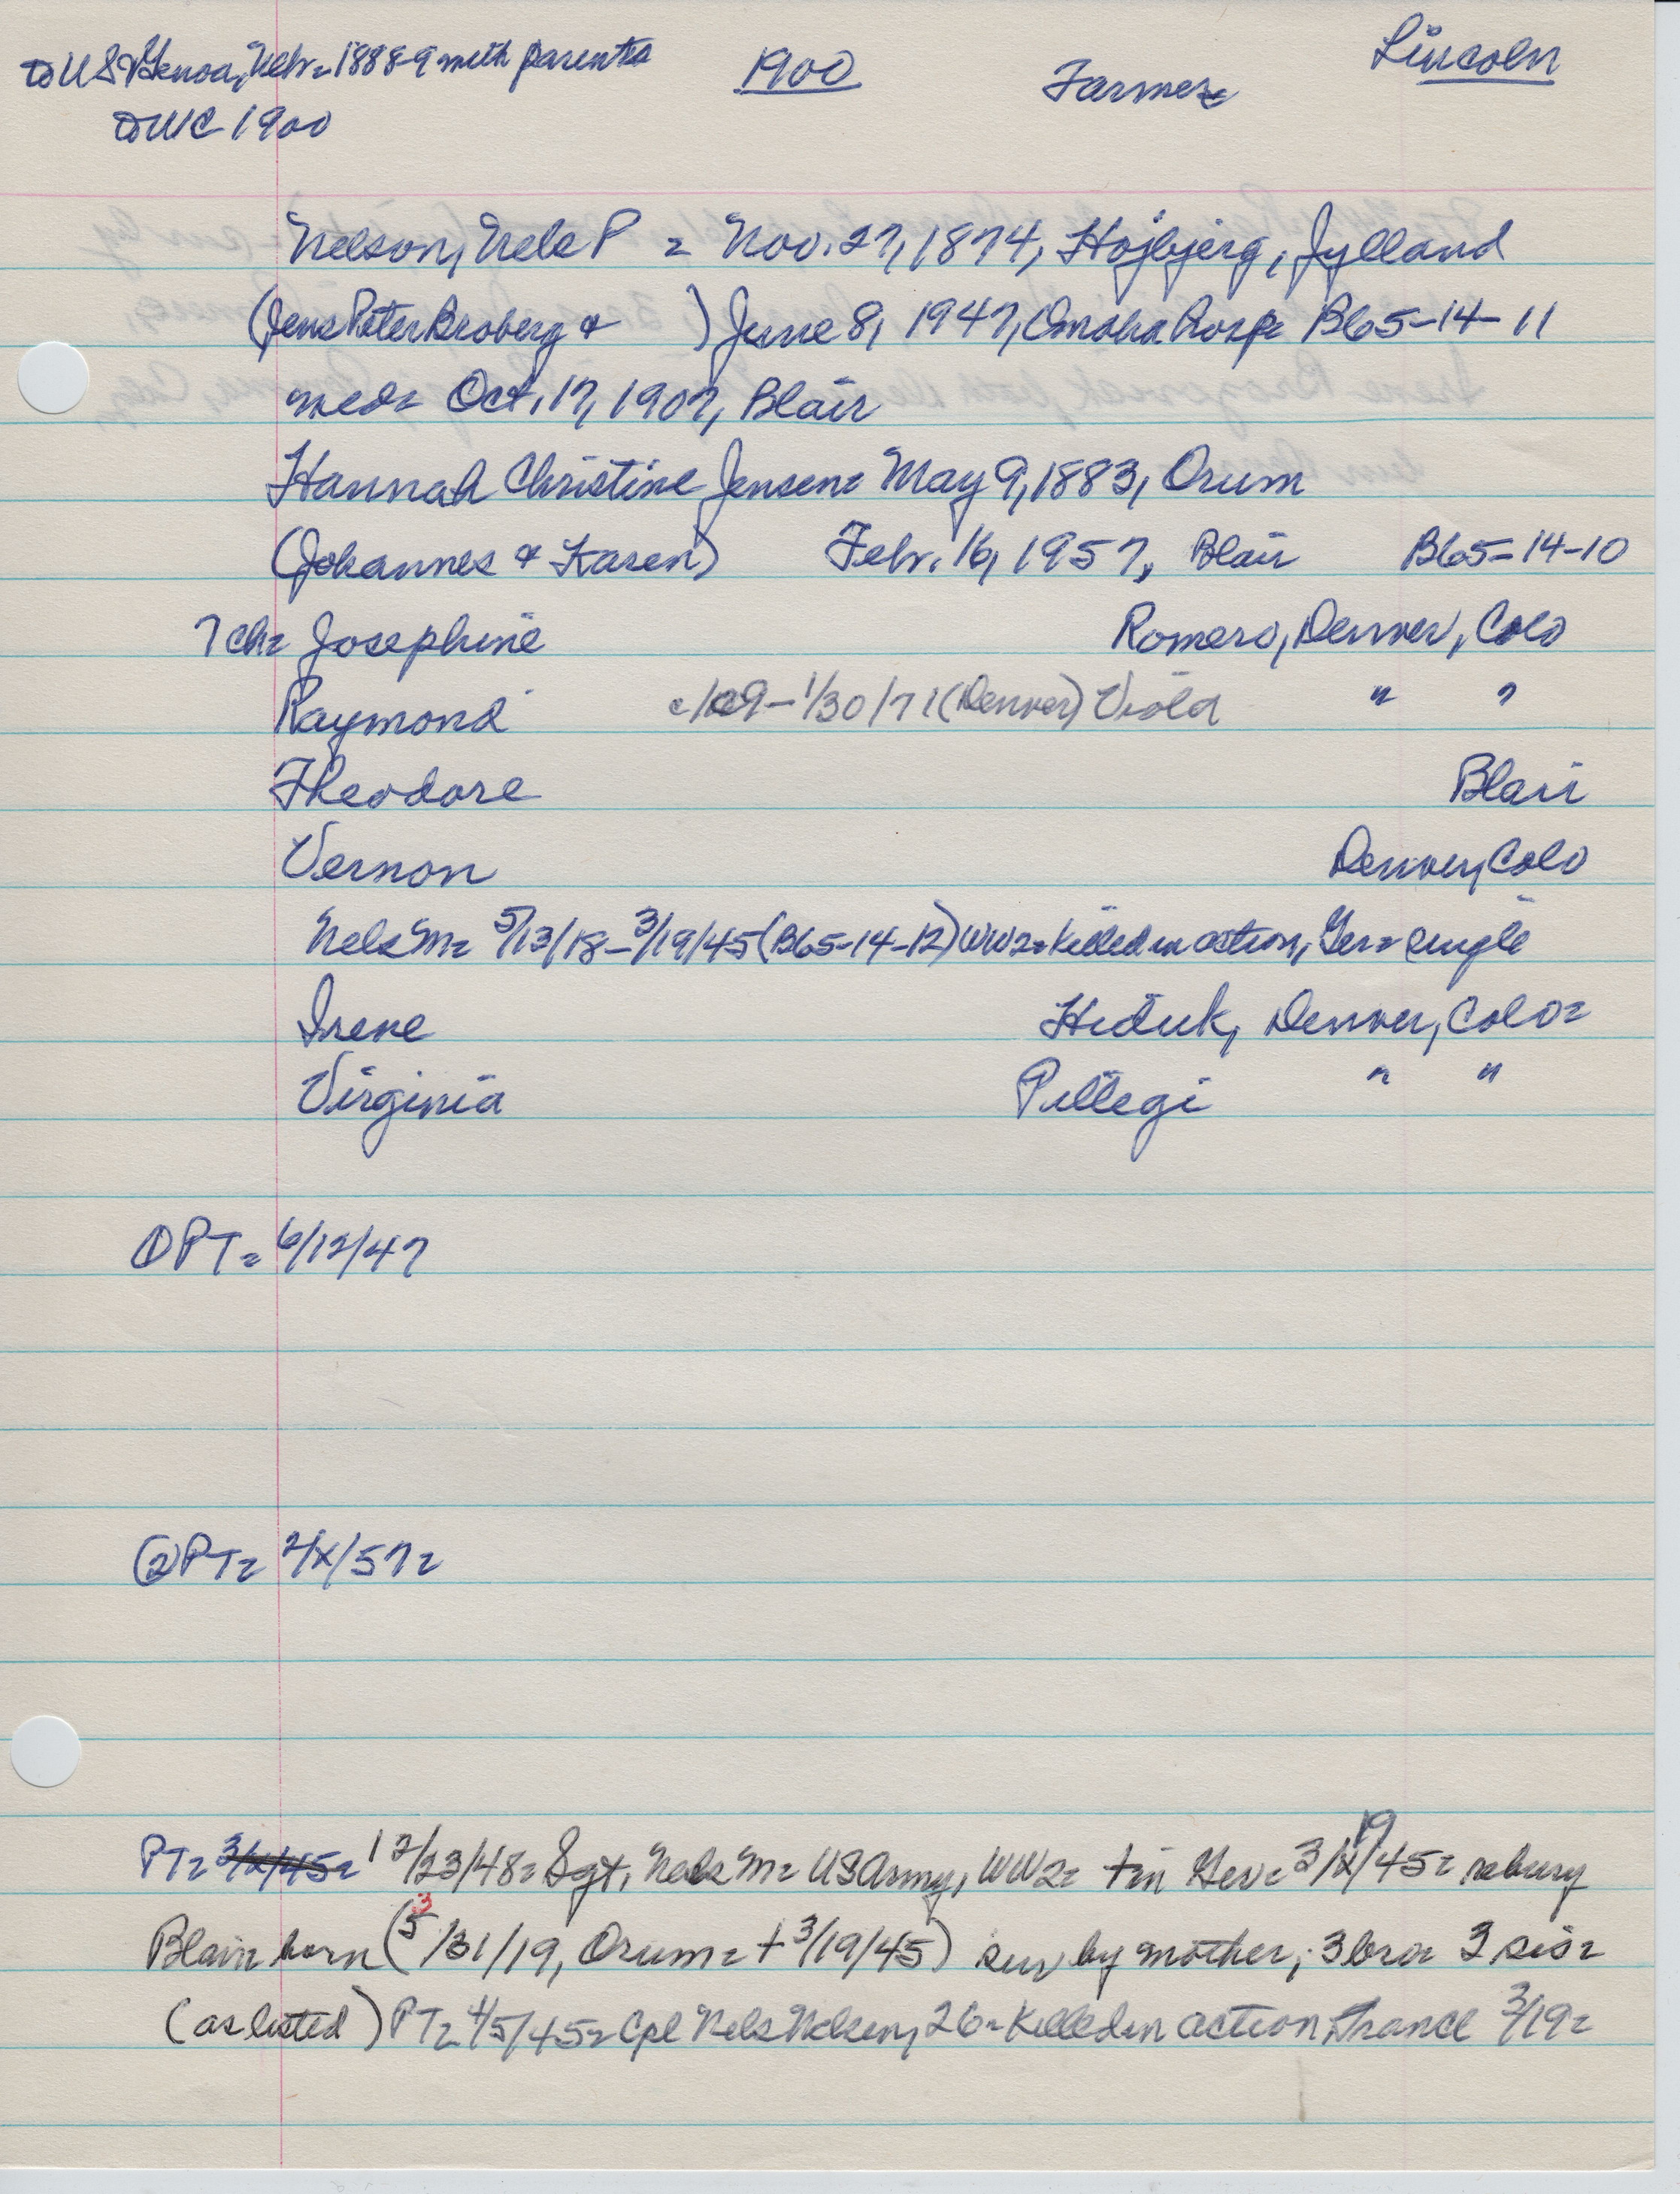 to US & Genoa, Nebr = 1888-9 with parents 1900 Farmer Lincoln
to WC 1900
Nelson, Nels P = Nov. 27, 1874, Hojbjerg, Jylland
(Jens Peter Broberg & ) June 8, 1947, Omaha Hosp B65-14-11
med = Oct. 17, 1907, Blair
Hannah Christine Jensen = May 9, 1883, Orum
(Johannes & Karen) Febr. 16, 1957, Blair B65=14-10
7 ch = Josephine Romero, Denver, Colo
Raymond c/09-1/30/71 (Denver) Viola " "
Theodore Blair
Vernon Denver, Colo
Nels M = 5/13/18-3/19/45 (B65-14-12) WW2 = Killed in action, Ger = single
Irene Hiduk, Denver, Colo =
Virginia Pillegi " "
① PT = 6/12/47
② PT = 2/x/57 =
PT = 3/x/45 = 12/23/48 = Sgt. Nels M = US Army, WW2 = + in Ger = 3/19/45 = rebury
Blair = born (5/31/19, Orum = + 3/19/45) surv by mother, 3 bro = 3 sis =
(as listed) PT = 4/5/45 = Cpl Nels Nelsen, 26 = Killed in action, France 3/19 =